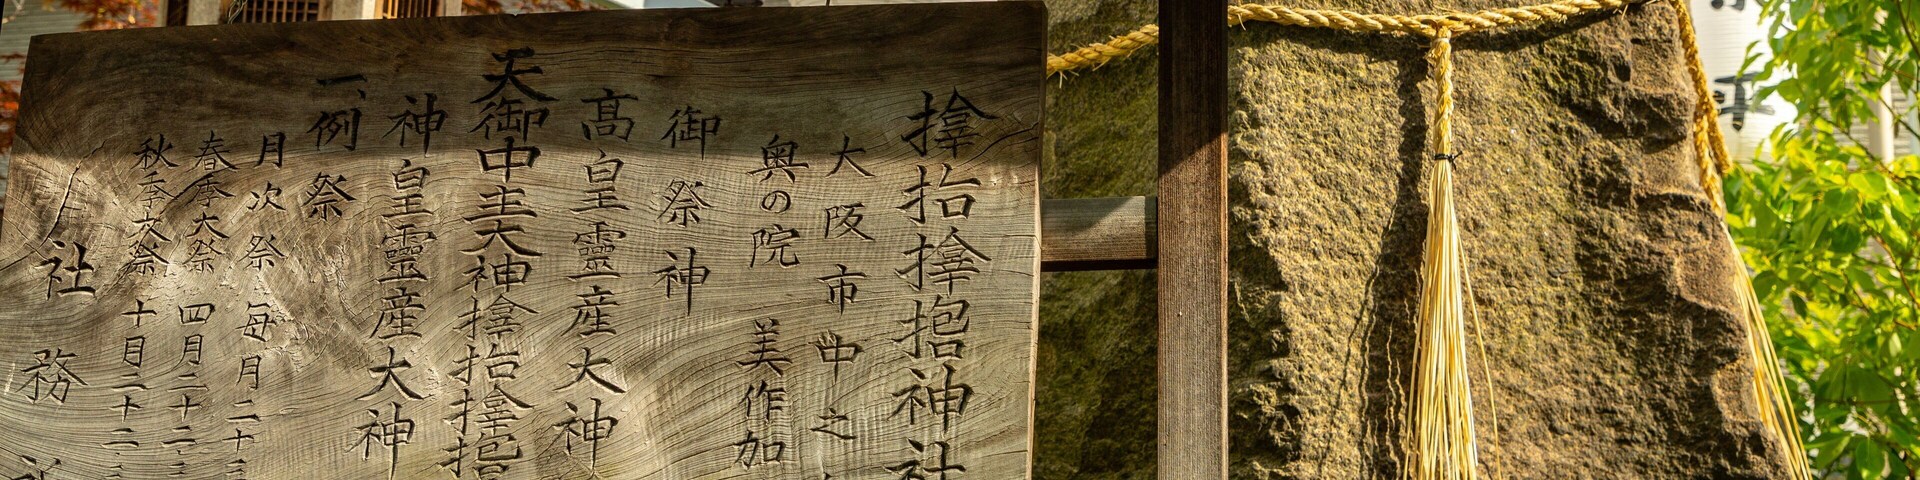 𪮷抬𪮷𪮇神社
大阪市中之
奥の院 美作加
御祭神
髙皇靈産大神
天御中主大神𪮷抬𪮷𪮇
神皇靈産大神
一、例祭
月次祭 毎月二十三
春季大祭 四月二十二、三
秋季大祭 十月二十二、三
社務